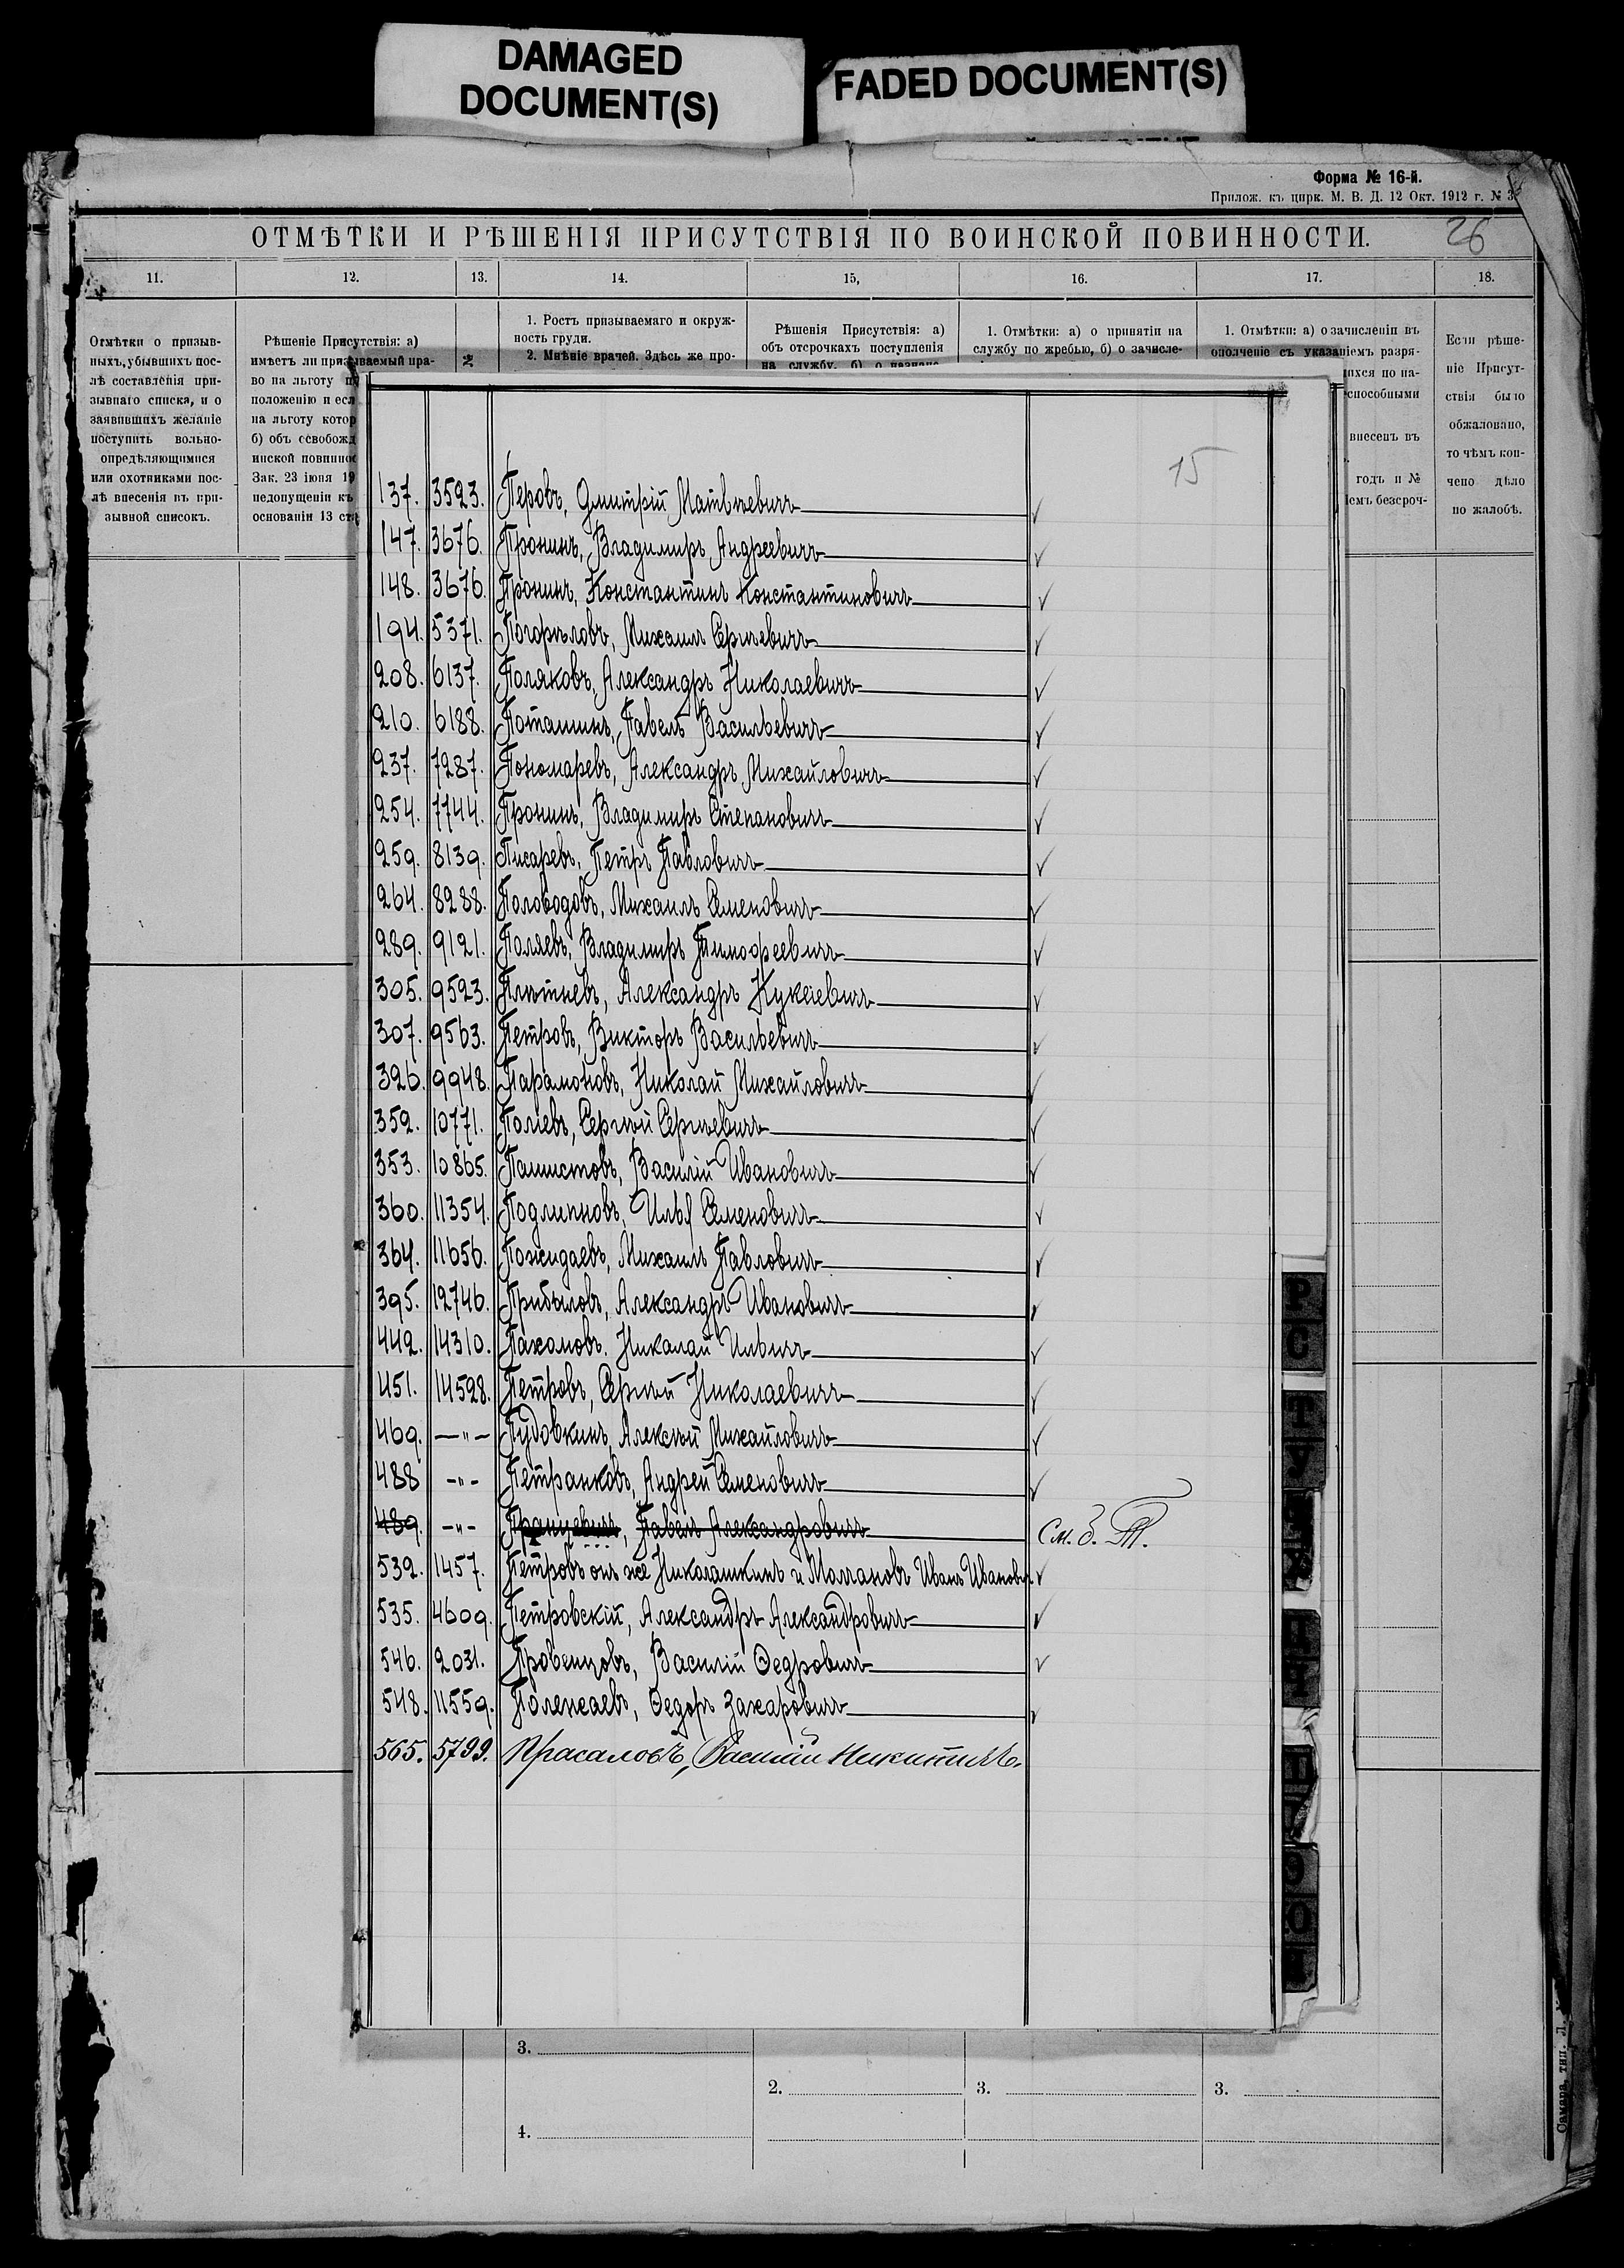 DAMAGED
DOCUMENT(S)
FADED DOCUMENT(S)
Форма № 16-й.
Прилож. къ цирк. М. В. Д. 12 Окт. 1912 г. № 3
ОТМѢТКИ И РѢШЕНІЯ ПРИСУТСТВІЯ ПО ВОИНСКОЙ ПОВИННОСТИ.
26
11. 12. 13. 14. 15, 16. 17. 18.
Отмѣтки о призыв-
ныхъ, убывшихъ пос-
лѣ составленія при-
зывнаго списка, и о
заявившихъ желаніе
поступить вольно-
опредѣляющимися
или охотниками пос-
лѣ внесенія въ при-
зывной списокъ.
Рѣшеніе Присутствія: а)
имѣетъ ли призываемый пра-
во на льготу
положенію и есл
на льготу котор
б) объ освобожд
инской повинно
Зак. 23 іюня 19
недопущеніи къ
основаніи 13 ст
№
1. Ростъ призываемаго и окруж-
ность груди.
2. Мнѣніе врачей. Здѣсь же про-
Рѣшенія Присутствія: а)
объ отсрочкахъ поступленія
на службу, б) о назначе-
1. Отмѣтки: а) о принятіи на
службу по жребью, б) о зачисле-
1. Отмѣтки: а) о зачисленіи въ
ополченіе съ указаніемъ разря-
ихся по на-
способными
внесенъ въ
годъ и №
іемъ безсроч-
Если рѣше-
ніе Присут-
ствія было
обжаловано,
то чѣмъ кон-
чено дѣло
по жалобѣ.
15
137. 3523. Перовъ, Дмитрій Матвѣевичъ
147. 3676. Пронинъ, Владимиръ Андреевичъ
148. 3676. Пронинъ, Константинъ Константиновичъ
194. 5371. Погорѣловъ, Михаилъ Сергѣевичъ
208. 6137. Поляковъ, Александръ Николаевичъ
210. 6188. Поташинъ, Павелъ Васильевичъ
237. 7287. Пономаревъ, Александръ Михайловичъ
254. 7744. Пронинъ, Владимиръ Степановичъ
259. 8139. Писаревъ, Петръ Павловичъ
264. 8288. Половодовъ, Михаилъ Семеновичъ
289. 9121. Поляевъ, Владимиръ Тимофеевичъ
305. 9523. Плѣтневъ, Александръ
307. 9563. Петровъ, Викторъ Васильевичъ
326. 9948. Парамоновъ, Николай Михайловичъ
352. 10771. Сергѣй Сергѣевичъ
353. 10865. Василій Ивановичъ
360. 11354. Подлипновъ, Илья Семеновичъ
364. 11656. Пожидаевъ, Михаилъ Павловичъ
395. 12746. Прибыловъ, Александръ Ивановичъ
442. 14310. Пахомовъ. Николай Ильичъ
451. 14528. Петровъ, Сергѣй Николаевичъ
469. —"— Пудовкинъ, Алексѣй Михайловичъ
488 -"- Петранковъ, Андрей Семеновичъ
489. -"- Павелъ Александровичъ См. б. Т.
532. 1457. Петровъ онъ же Николашкинъ и Молчановъ Иванъ Иванович
535. 4609. Петровскій, Александръ Александровичъ
546. 2031. Провенцовъ, Василій Федровичъ
548. 11559. Полежаевъ, Федоръ Захаровичъ
565. 5799. Прасаловъ, Василій Никитичъ.
Р
С
Т
У
3.
2. 3. 3.
4.
Самара, тип. Л.